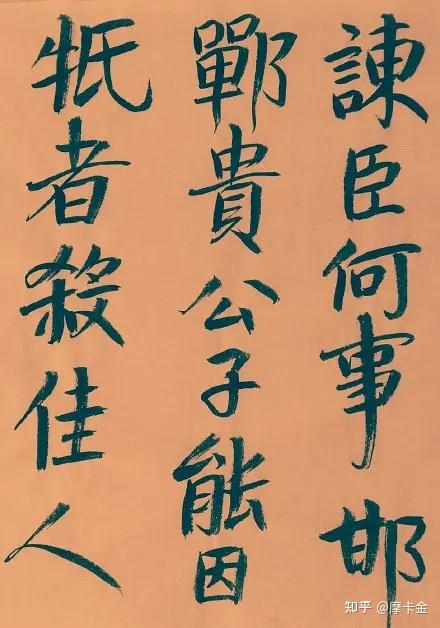 諫臣何事邯
鄲貴公子能因
牴者殺佳人
知乎 @摩卡金